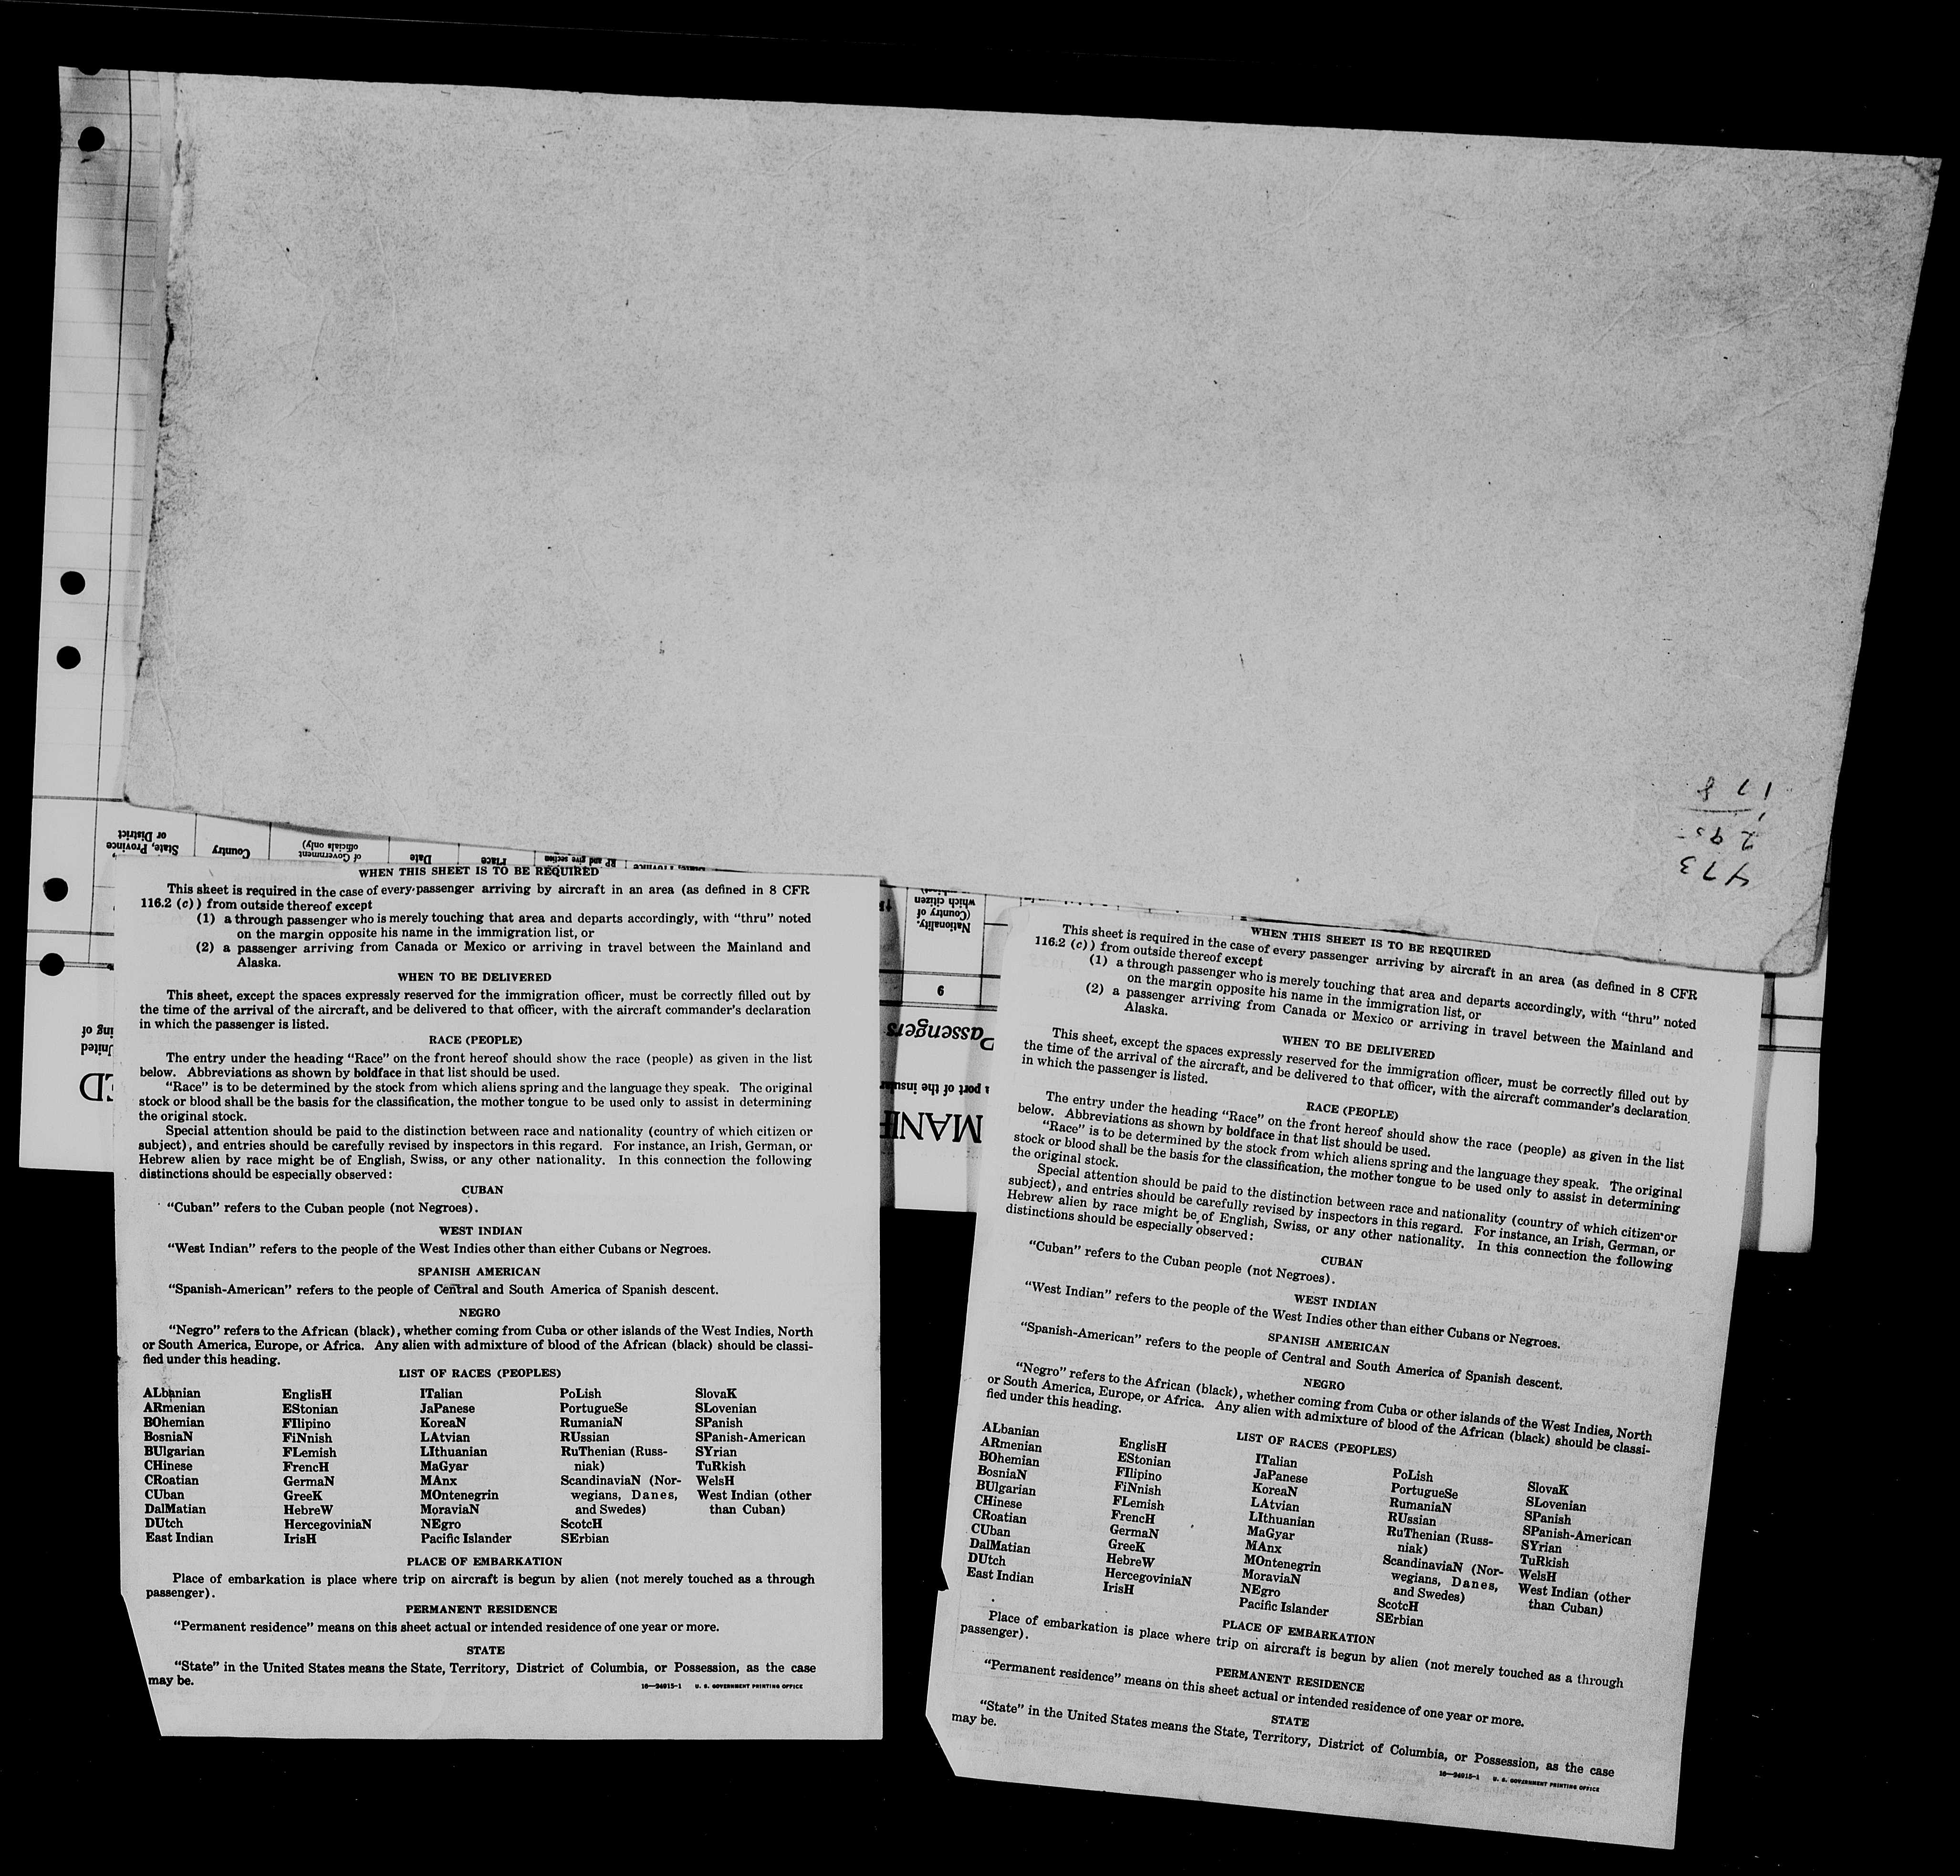 473
295
178
State, Province,
or District
Country
of Government
officials only)
Date
Place
RP and give section
Nationality.
(Country of
which citizen
6
ing of
United
assengers
a port of the insular
MANI
WHEN THIS SHEET IS TO BE REQUIRED
This sheet is required in the case of every passenger arriving by aircraft in an area (as defined in 8 CFR
116.2 (c)) from outside thereof except
(1) a through passenger who is merely touching that area and departs accordingly, with “thru” noted
on the margin opposite his name in the immigration list, or
(2) a passenger arriving from Canada or Mexico or arriving in travel between the Mainland and
Alaska.
WHEN TO BE DELIVERED
This sheet, except the spaces expressly reserved for the immigration officer, must be correctly filled out by
the time of the arrival of the aircraft, and be delivered to that officer, with the aircraft commander’s declaration
in which the passenger is listed.
RACE (PEOPLE)
The entry under the heading “Race” on the front hereof should show the race (people) as given in the list
below. Abbreviations as shown by boldface in that list should be used.
“Race” is to be determined by the stock from which aliens spring and the language they speak. The original
stock or blood shall be the basis for the classification, the mother tongue to be used only to assist in determining
the original stock.
Special attention should be paid to the distinction between race and nationality (country of which citizen or
subject), and entries should be carefully revised by inspectors in this regard. For instance, an Irish, German, or
Hebrew alien by race might be of English, Swiss, or any other nationality. In this connection the following
distinctions should be especially observed:
CUBAN
“Cuban” refers to the Cuban people (not Negroes).
WEST INDIAN
“West Indian” refers to the people of the West Indies other than either Cubans or Negroes.
SPANISH AMERICAN
“Spanish-American” refers to the people of Central and South America of Spanish descent.
NEGRO
“Negro” refers to the African (black), whether coming from Cuba or other islands of the West Indies, North
or South America, Europe, or Africa. Any alien with admixture of blood of the African (black) should be classi-
fied under this heading.
LIST OF RACES (PEOPLES)
ALbanian
ARmenian
BOhemian
BosniaN
BUlgarian
CHinese
CRoatian
CUban
DalMatian
DUtch
East Indian
EnglisH
EStonian
FIlipino
FiNnish
FLemish
FrencH
GermaN
GreeK
HebreW
HercegoviniaN
IrisH
ITalian
JaPanese
KoreaN
LAtvian
LIthuanian
MaGyar
MAnx
MOntenegrin
MoraviaN
NEgro
Pacific Islander
PoLish
PortugueSe
RumaniaN
RUssian
RuThenian (Russ-
niak)
ScandinaviaN (Nor-
wegians, Danes,
and Swedes)
ScotcH
SErbian
SlovaK
SLovenian
SPanish
SPanish-American
SYrian
TuRkish
WelsH
West Indian (other
than Cuban)
PLACE OF EMBARKATION
Place of embarkation is place where trip on aircraft is begun by alien (not merely touched as a through
passenger).
PERMANENT RESIDENCE
“Permanent residence” means on this sheet actual or intended residence of one year or more.
STATE
“State” in the United States means the State, Territory, District of Columbia, or Possession, as the case
may be.
16—34915-1 U. S. GOVERNMENT PRINTING OFFICE
WHEN THIS SHEET IS TO BE REQUIRED
This sheet is required in the case of every passenger arriving by aircraft in an area (as defined in 8 CFR
116.2 (c)) from outside thereof except
(1) a through passenger who is merely touching that area and departs accordingly, with “thru” noted
on the margin opposite his name in the immigration list, or
(2) a passenger arriving from Canada or Mexico or arriving in travel between the Mainland and
Alaska.
WHEN TO BE DELIVERED
This sheet, except the spaces expressly reserved for the immigration officer, must be correctly filled out by
the time of the arrival of the aircraft, and be delivered to that officer, with the aircraft commander’s declaration
in which the passenger is listed.
RACE (PEOPLE)
The entry under the heading “Race” on the front hereof should show the race (people) as given in the list
below. Abbreviations as shown by boldface in that list should be used.
“Race” is to be determined by the stock from which aliens spring and the language they speak. The original
stock or blood shall be the basis for the classification, the mother tongue to be used only to assist in determining
the original stock.
Special attention should be paid to the distinction between race and nationality (country of which citizen or
subject), and entries should be carefully revised by inspectors in this regard. For instance, an Irish, German, or
Hebrew alien by race might be of English, Swiss, or any other nationality. In this connection the following
distinctions should be especially observed:
CUBAN
“Cuban” refers to the Cuban people (not Negroes).
WEST INDIAN
“West Indian” refers to the people of the West Indies other than either Cubans or Negroes.
SPANISH AMERICAN
“Spanish-American” refers to the people of Central and South America of Spanish descent.
NEGRO
“Negro” refers to the African (black), whether coming from Cuba or other islands of the West Indies, North
or South America, Europe, or Africa. Any alien with admixture of blood of the African (black) should be classi-
fied under this heading.
LIST OF RACES (PEOPLES)
ALbanian
ARmenian
BOhemian
BosniaN
BUlgarian
CHinese
CRoatian
CUban
DalMatian
DUtch
East Indian
EnglisH
EStonian
FIlipino
FiNnish
FLemish
FrencH
GermaN
GreeK
HebreW
HercegoviniaN
IrisH
ITalian
JaPanese
KoreaN
LAtvian
LIthuanian
MaGyar
MAnx
MOntenegrin
MoraviaN
NEgro
Pacific Islander
PoLish
PortugueSe
RumaniaN
RUssian
RuThenian (Russ-
niak)
ScandinaviaN (Nor-
wegians, Danes,
and Swedes)
ScotcH
SErbian
SlovaK
SLovenian
SPanish
SPanish-American
SYrian
TuRkish
WelsH
West Indian (other
than Cuban)
PLACE OF EMBARKATION
Place of embarkation is place where trip on aircraft is begun by alien (not merely touched as a through
passenger).
PERMANENT RESIDENCE
“Permanent residence” means on this sheet actual or intended residence of one year or more.
STATE
“State” in the United States means the State, Territory, District of Columbia, or Possession, as the case
may be.
16—34915-1 U. S. GOVERNMENT PRINTING OFFICE